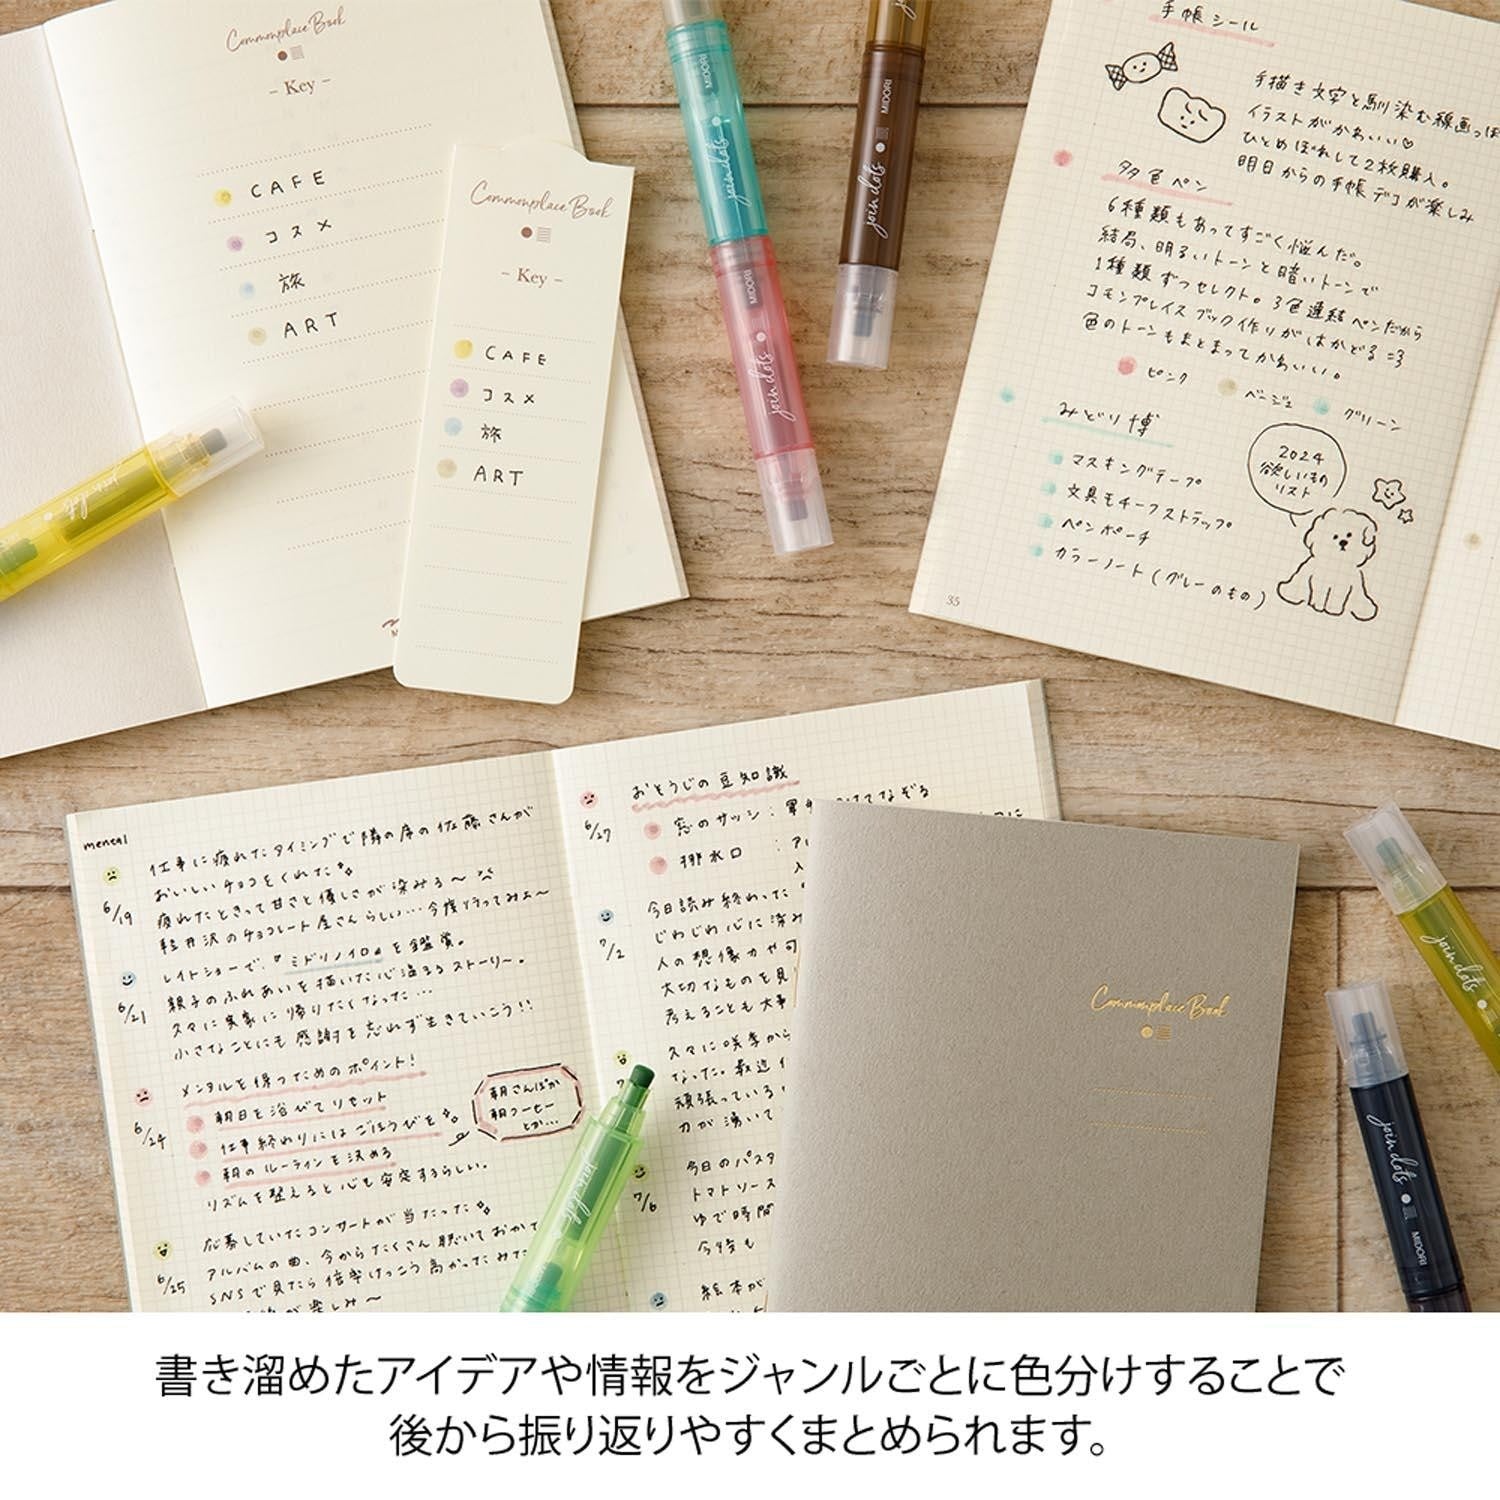 Commonplace Book
– Key –
CAFE
コスメ
旅
ART
Commonplace Book
– Key –
CAFE
コスメ
旅
ART
join dots
MIDORI
join dots
MIDORI
join dots
MIDORI
join dots
手帳シール
手描き文字と馴染む線画っぽ
イラストがかわいい♡
ひとめぼれして2枚購入。
明日からの手帳デコが楽しみ
多色ペン
6種類もあってすごく悩んだ。
結局、明るいトーンと暗いトーンで
1種類ずつセレクト。3色連結ペンだから
コモンプレイスブック作りがはかどる=3
色のトーンもまとまってかわいい。
ピンク
ベージュ
グリーン
みどり博
マスキングテープ
文具モチーフストラップ
ペンポーチ
カラーノート(グレーのもの)
2024
欲しいもの
リスト
35
mental
6/19
仕事に疲れたタイミングで隣の席の佐藤さんが
おいしいチョコをくれた
疲れたときって甘さと優しさが染みる〜
軽井沢のチョコレート屋さんらしい…今度行ってみよ〜
6/21
レイトショーで、『ミドリノイロ』を鑑賞。
親子のふれあいを描いた心温まるストーリー。
久々に実家に帰りたくなった…
小さなことにも感謝を忘れず生きていこう!!
6/24
メンタルを保つためのポイント!
朝日を浴びてリセット
仕事終わりにはごほうびを
朝のルーティンを決める
リズムを整えると心も安定するらしい。
朝さんぽか
朝コーヒー
とか…
6/25
応募していたコンサートが当たった
アルバムの曲、今からたくさん聴いておかて
SNSで見たら倍率けっこう高かったみた
が楽しみ〜
6/27
おそうじの豆知識
窓のサッシ:軍手
けてなぞる
排水口:
7/2
今日読み終わった『
じわじわ心に染み
人の想像力や可
大切なものを見
考えることも大事
久々に咲季から
なった。最近イ
頑張っている
力が湧いて
7/6
今日のパスタ
トマトソース
ゆで時間
今度も
絵本が
join dots
Commonplace Book
join dots
join dots
MIDORI
書き溜めたアイデアや情報をジャンルごとに色分けすることで
後から振り返りやすくまとめられます。